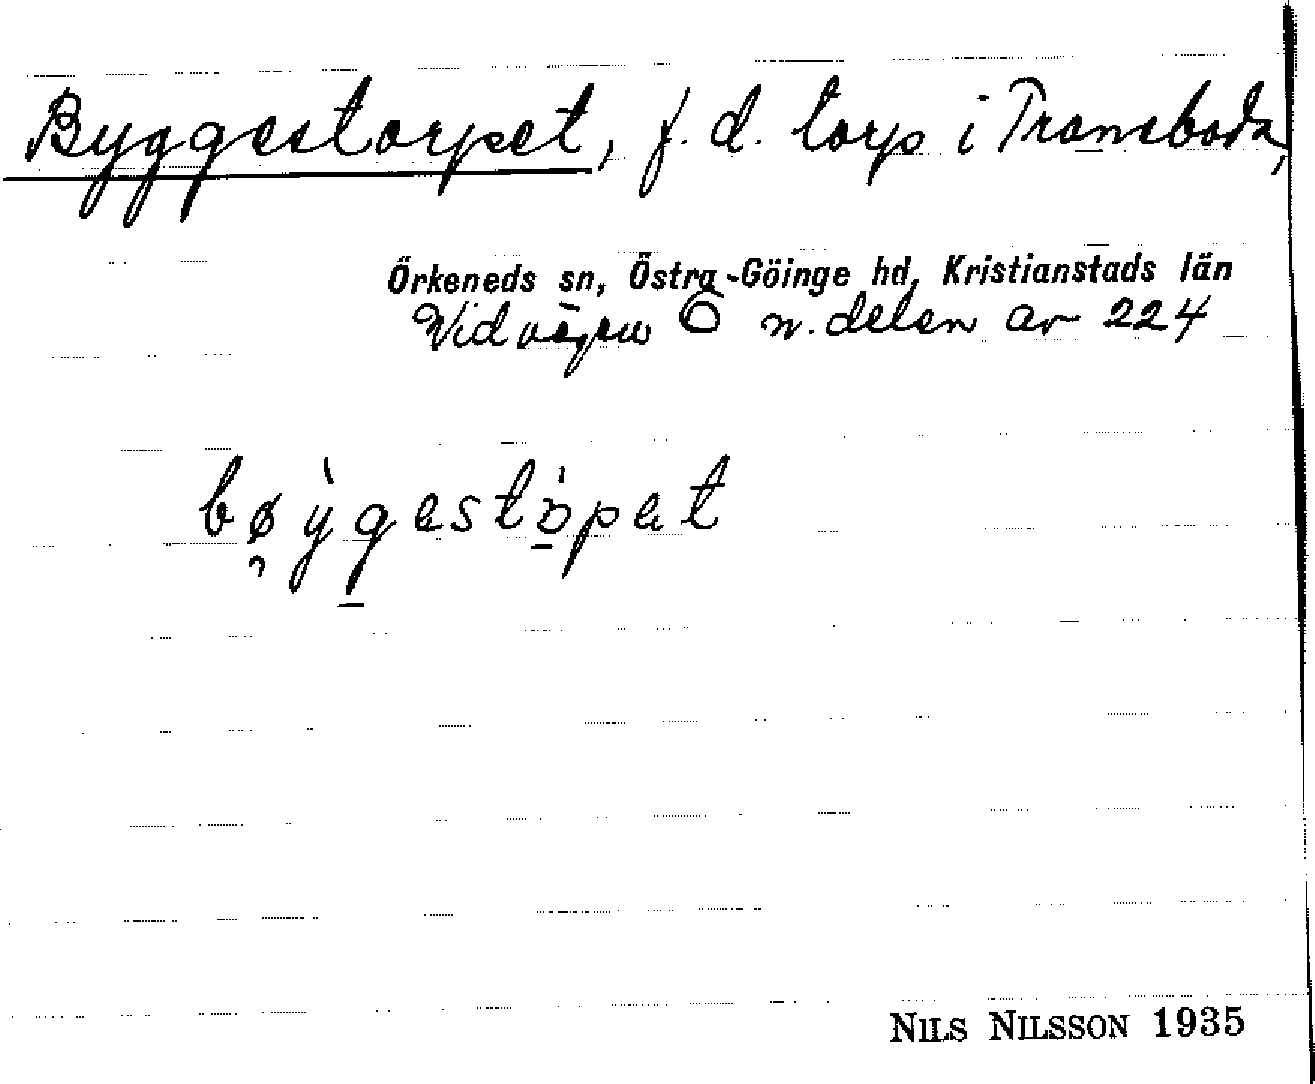 Byggestorpet, f. d. torp i Transboda,
Örkeneds sn, Östra-Göinge hd, Kristianstads län
Vid vägen Ö n. delen av 224
bøỳgestöpet
NILS NILSSON 1935